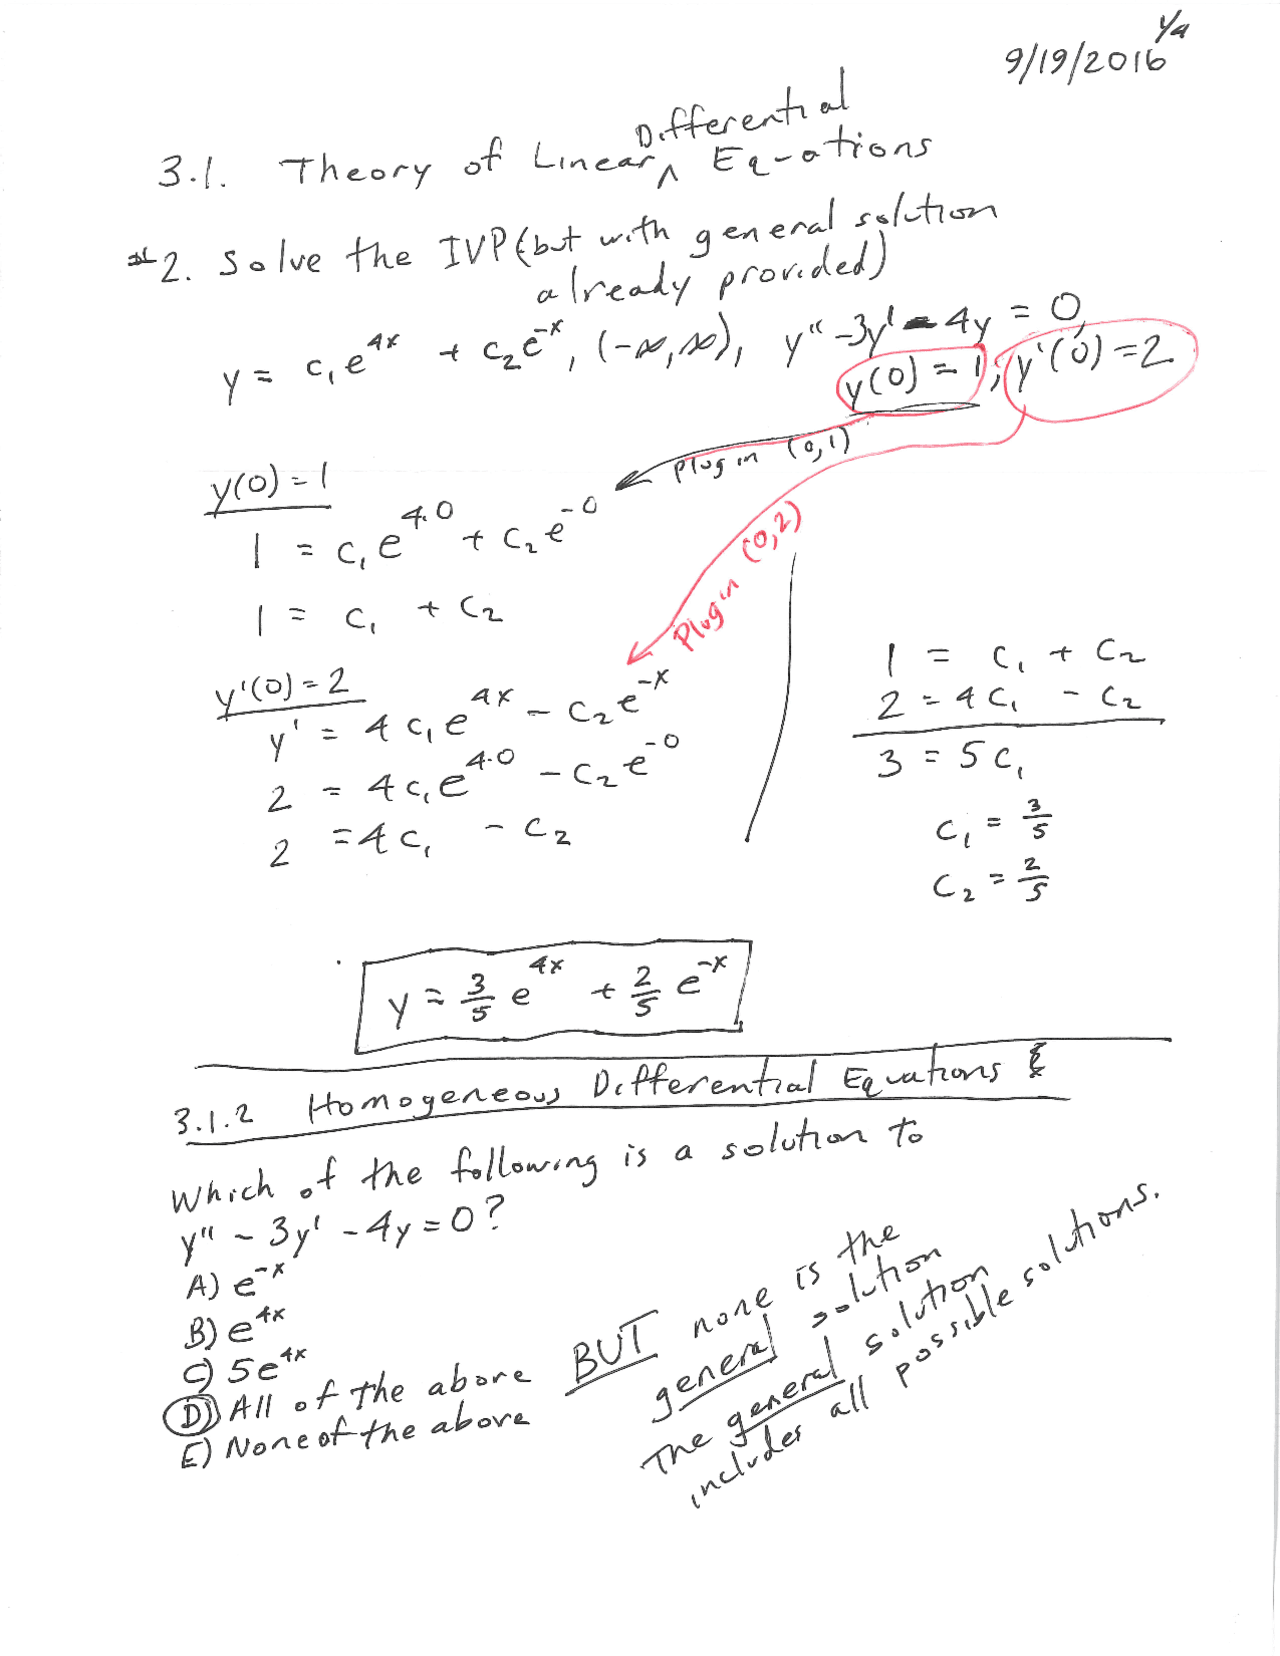 1/4
9/19/2016
3.1. Theory of Linear ^ Differential Equations
#2. Solve the IVP (but with general solution
already provided)
y = c₁e^{4x} + c₂e^{-x}, (-∞,∞), y'' - 3y' - 4y = 0,
y(0) = 1, y'(0) = 2
Plug in (0,1)
y(0) = 1
1 = c₁e^{4·0} + c₂e^{-0}
1 = c₁ + c₂
Plug in (0,2)
y'(0) = 2
y' = 4c₁e^{4x} - c₂e^{-x}
2 = 4c₁e^{4·0} - c₂e^{-0}
2 = 4c₁ - c₂
1 = c₁ + c₂
2 = 4c₁ - c₂
3 = 5c₁
c₁ = 3/5
c₂ = 2/5
y = 3/5 e^{4x} + 2/5 e^{-x}
3.1.2 Homogeneous Differential Equations
Which of the following is a solution to
y'' - 3y' - 4y = 0?
A) e^{-x}
B) e^{4x}
C) 5e^{4x}
D) All of the above
E) None of the above
BUT none is the
general solution
The general solution
includes all possible solutions.